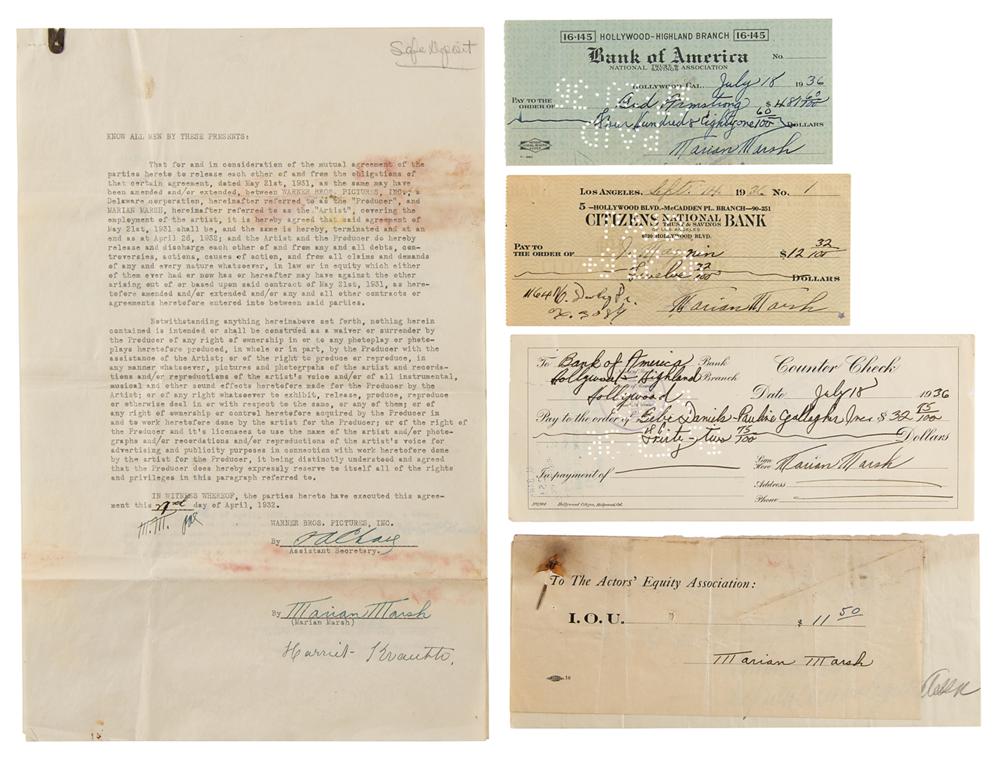 Safe Deposit
KNOW ALL MEN BY THESE PRESENTS:
That for and in consideration of the mutual agreement of the
parties hereto to release each other of and from the obligations of
that certain agreement, dated May 21st, 1931, as the same may have
been amended and/or extended, between WARNER BROS. PICTURES, INC., a
Delaware corporation, hereinafter referred to as the "Producer", and
MARIAN MARSH, hereinafter referred to as the "Artist", covering the
employment of the artist, it is hereby agreed that said agreement of
May 21st, 1931 shall be, and the same is hereby, terminated and at an
end as at April 26, 1932; and the Artist and the Producer do hereby
release and discharge each other of and from any and all debts, con-
troversies, actions, causes of action, and from all claims and demands
of any and every nature whatsoever, in law or in equity which either
of them ever had or now has or hereafter may have against the other
arising out of or based upon said contract of May 21st, 1931, as here-
tofore amended and/or extended and/or any and all other contracts or
agreements heretofore entered into between said parties.
Notwithstanding anything hereinabove set forth, nothing herein
contained is intended or shall be construed as a waiver or surrender by
the Producer of any right of ownership in or to any photoplay or photo-
plays heretofore produced, in whole or in part, by the Producer with the
assistance of the Artist; or of the right to produce or reproduce, in
any manner whatsoever, pictures and photographs of the artist and recorda-
tions and/or reproductions of the artist's voice and/or of all instrumental,
musical and other sound effects heretofore made for the Producer by the
Artist; or of any right whatsoever to exhibit, release, produce, reproduce
or otherwise deal in or with respect to the same, or any of them; or of
any right of ownership or control heretofore acquired by the Producer in
and to work heretofore done by the artist for the Producer; or of the right of
the Producer and it's licensees to use the name of the artist and/or photo-
graphs and/or recordations and/or reproductions of the artist's voice for
advertising and publicity purposes in connection with work heretofore done
by the artist for the Producer, it being distinctly understood and agreed
that the Producer does hereby expressly reserve to itself all of the rights
and privileges in this paragraph referred to.
IN WITNESS WHEREOF, the parties hereto have executed this agree-
ment this day of April, 1932.
M.M.
WARNER BROS. PICTURES, INC.
By
Assistant Secretary.
By Marian Marsh
(Marian Marsh)
Harriet
16-145 HOLLYWOOD-HIGHLAND BRANCH 16-145
Bank of America
NATIONAL TRUST & SAVINGS ASSOCIATION
No.
HOLLYWOOD, CAL. July 18 1936
PAY TO THE
ORDER OF Armstrong $481 60/100
Four Hundred & Eighty one 60/100 DOLLARS
Marian Marsh
LOS ANGELES, Sept. 14 1936 No. 1
5 -HOLLYWOOD BLVD.-McCADDEN PL. BRANCH-90-251
CITIZENS NATIONAL BANK
TRUST & SAVINGS
OF LOS ANGELES
HOLLYWOOD BLVD.
PAY TO
THE ORDER OF $12 32/100
Twelve 32/100 DOLLARS
Marian Marsh
To Bank of America Bank
Hollywood - Highland Branch
Hollywood
Counter Check
Date July 18 1936
Pay to the order of Daniels-Pauline Gallagher Inc. $32 75/100
Thirty-Two 75/100 Dollars
In payment of
Sign
Here Marian Marsh
Address
Phone
Hollywood Citizen, Hollywood, Cal.
To The Actors' Equity Association:
I. O. U. $ 11 50
Marian Marsh